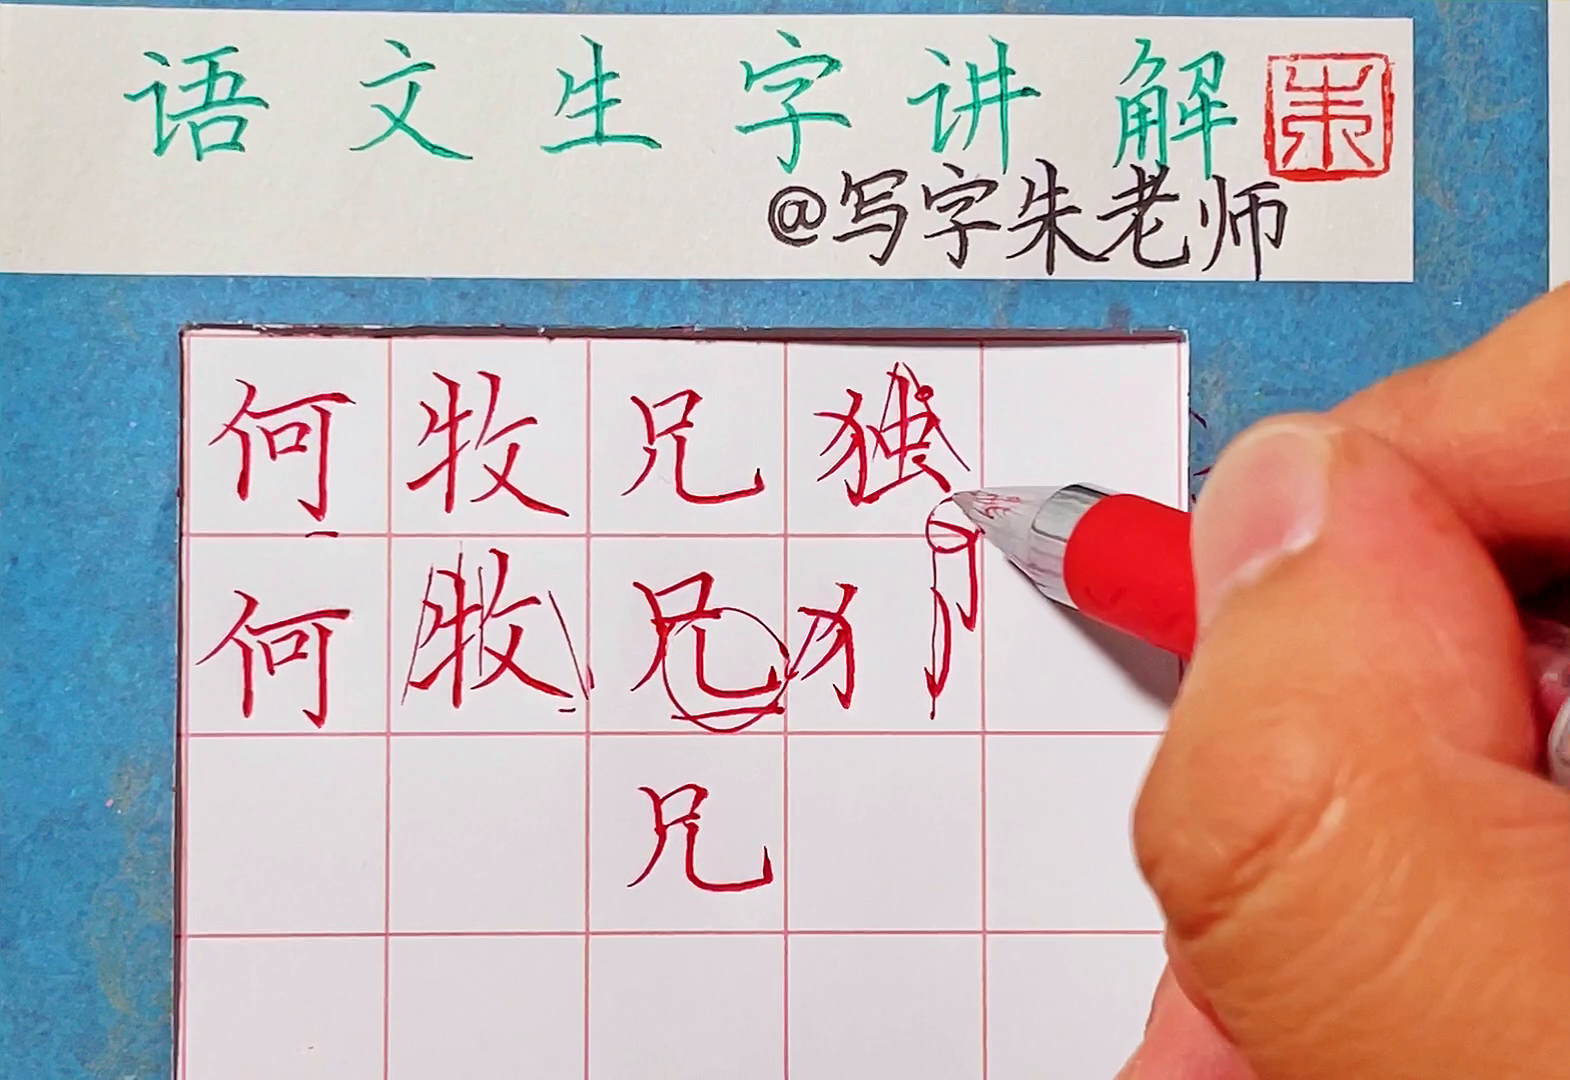 语文生字讲解朱
@写字朱老师
何牧兄独
何牧兄犭
兄